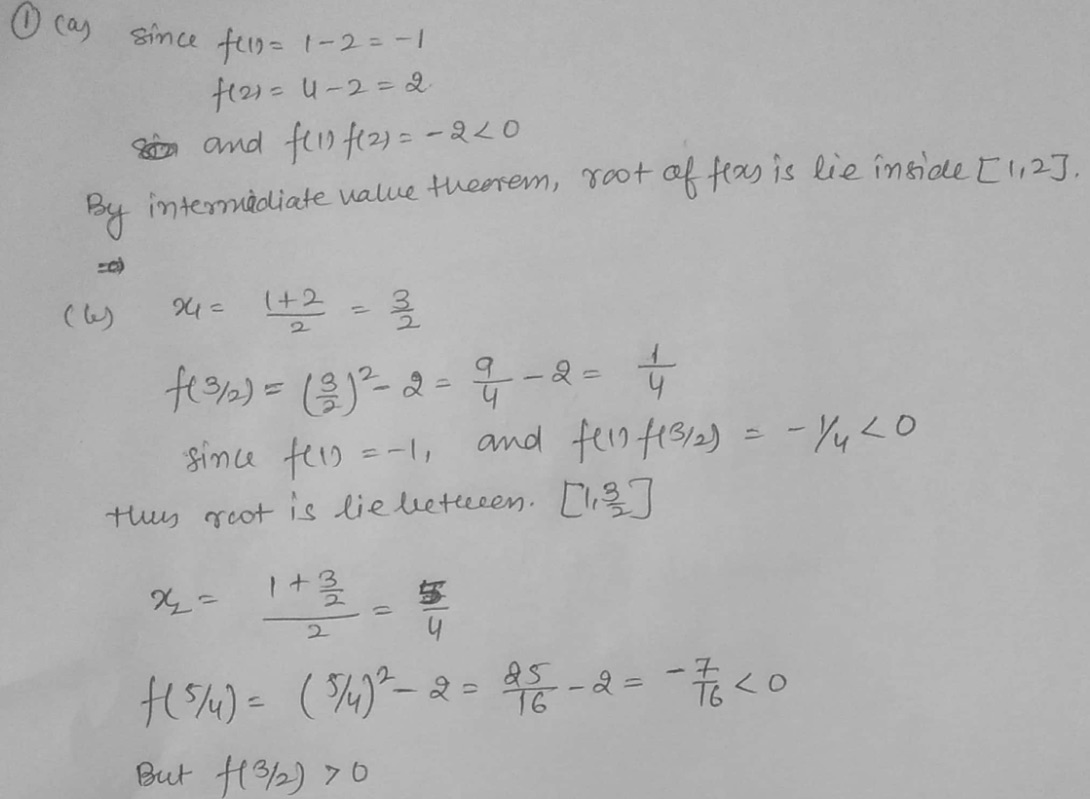 ① (a) Since f(1) = 1 - 2 = -1
f(2) = 4 - 2 = 2
and f(1) f(2) = -2 < 0
By intermediate value theorem, root of f(x) is lie inside [1,2].
⇒
(b) x₁ = (1+2)/2 = 3/2
f(3/2) = (3/2)² - 2 = 9/4 - 2 = 1/4
Since f(1) = -1, and f(1) f(3/2) = -1/4 < 0
thus root is lie between. [1, 3/2]
x₂ = (1 + 3/2)/2 = 5/4
f(5/4) = (5/4)² - 2 = 25/16 - 2 = -7/16 < 0
But f(3/2) > 0